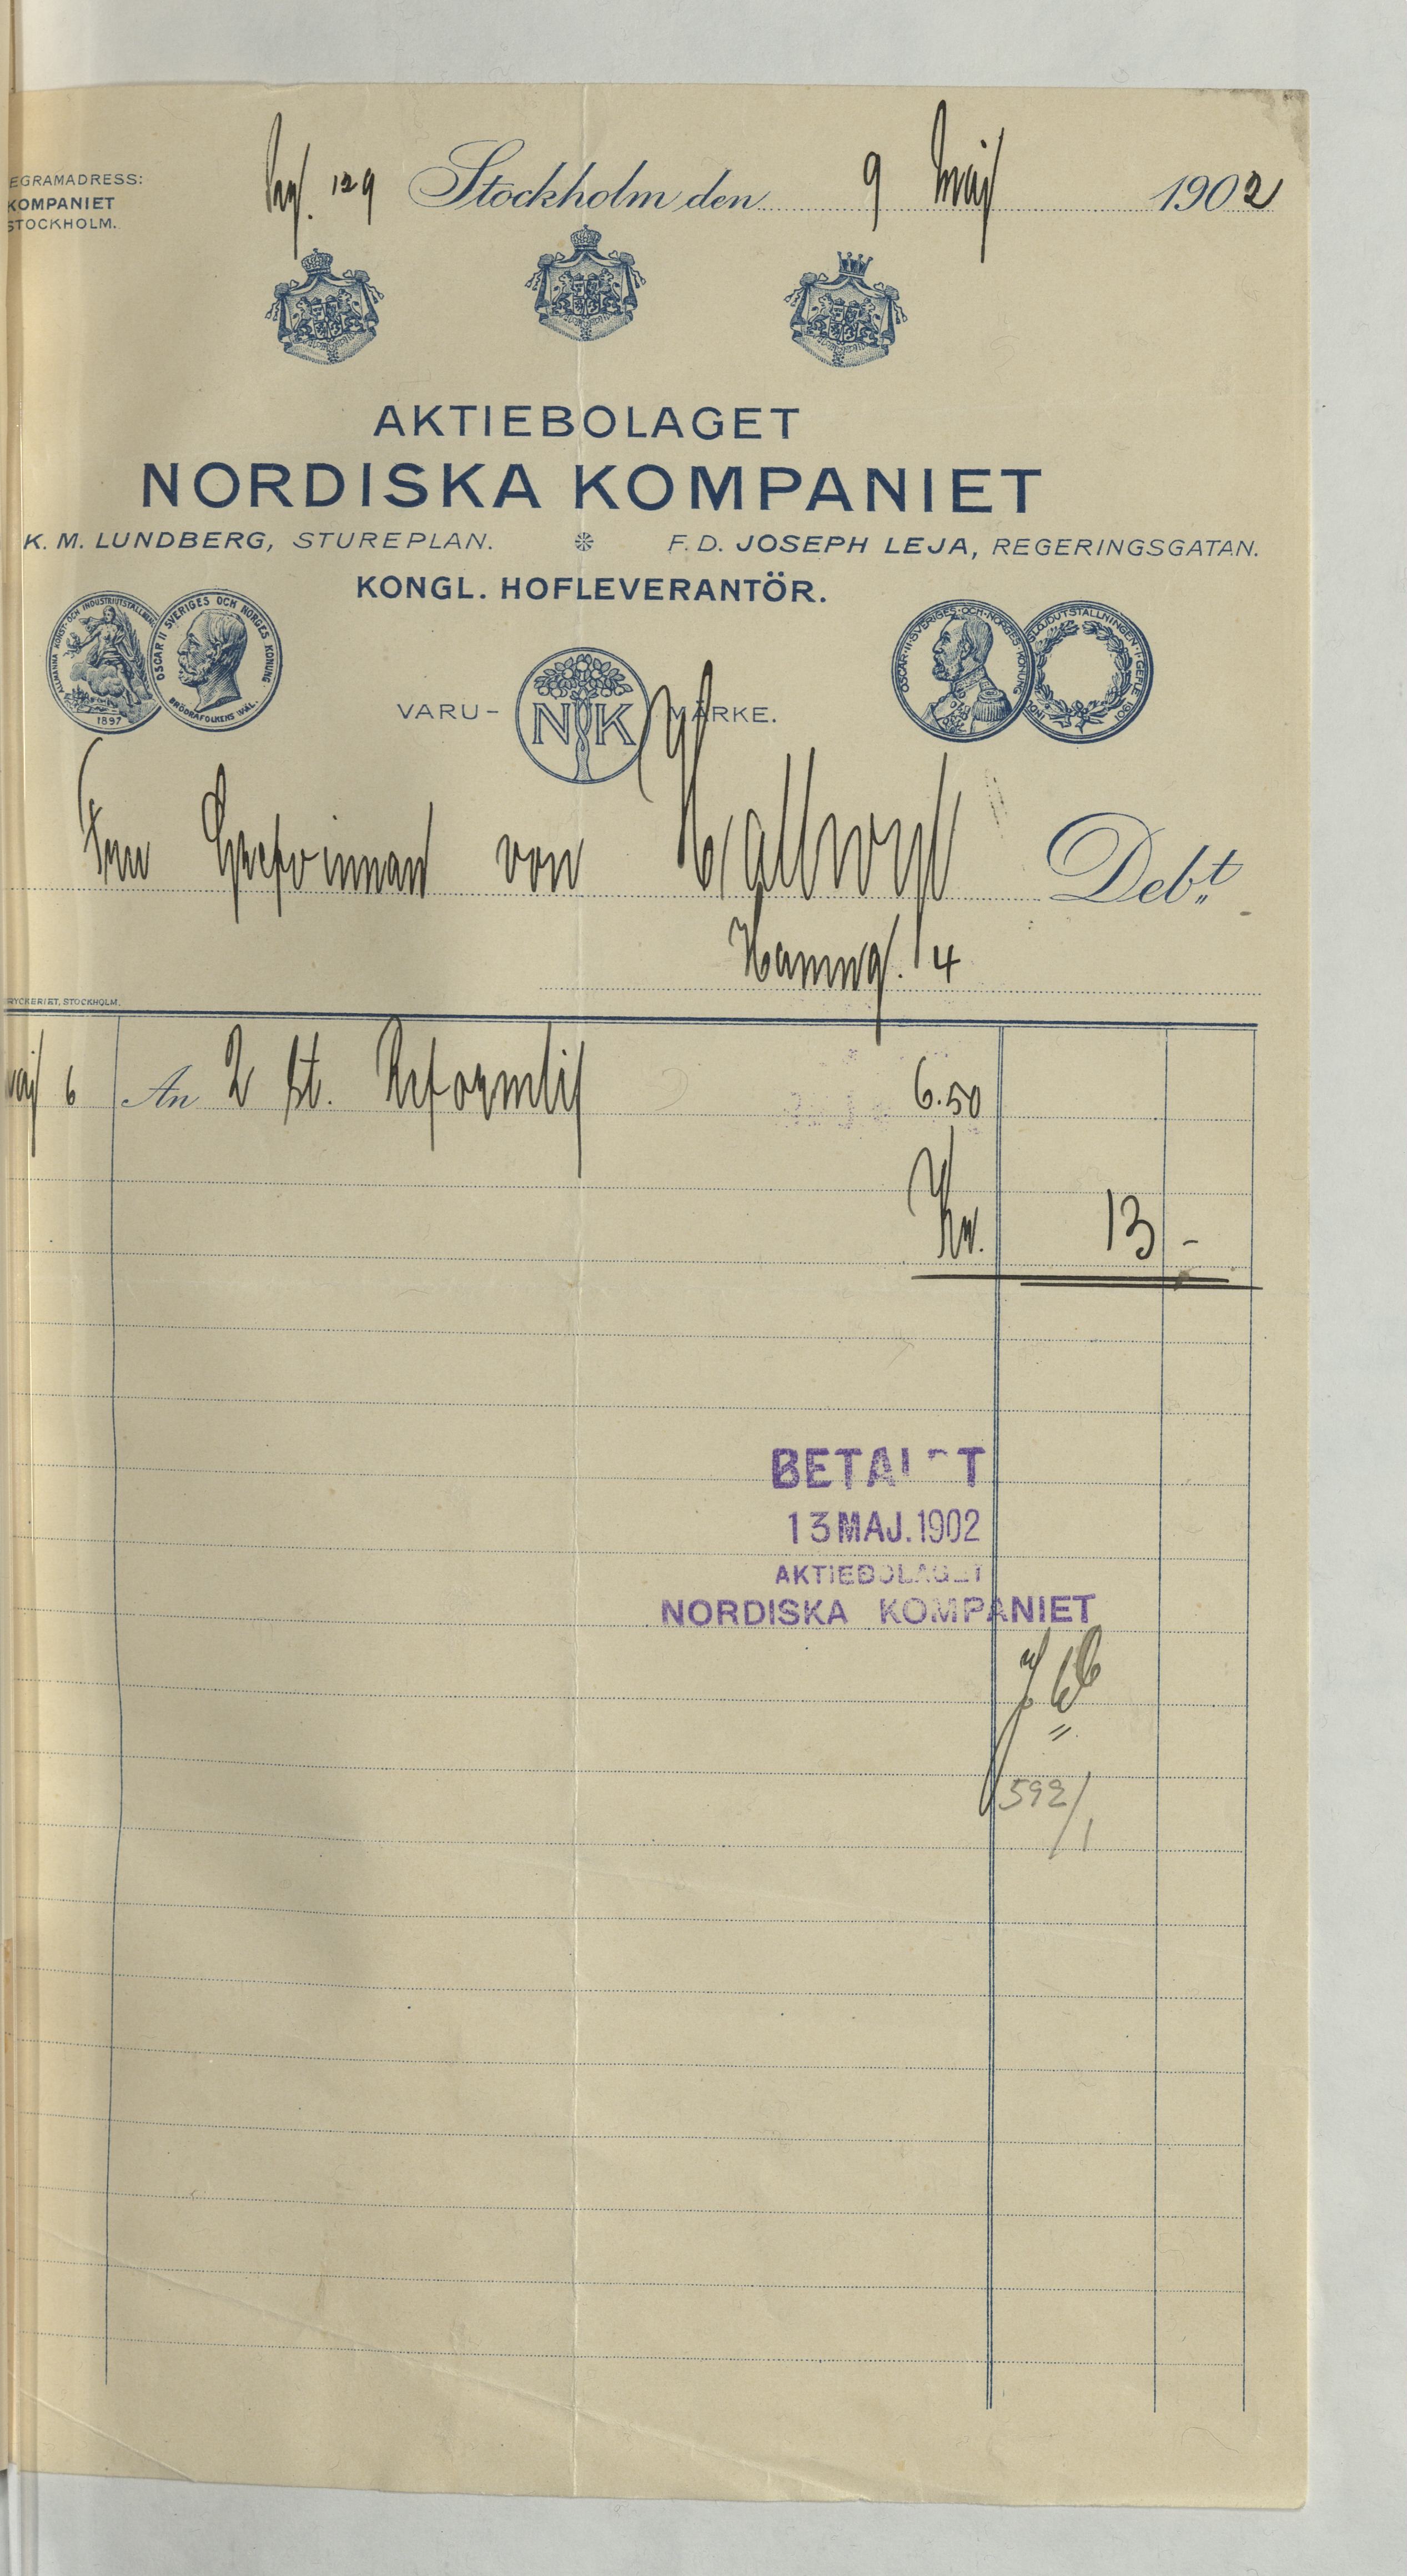 EGRAMADRESS:
KOMPANIET
STOCKHOLM.
129 Stockholm den 9 Maj 1902
AKTIEBOLAGET
NORDISKA KOMPANIET
K. M. LUNDBERG, STUREPLAN. F. D. JOSEPH LEJA, REGERINGSGATAN.
KONGL. HOFLEVERANTÖR.
ALLMÄNNA KONST- OCH INDUSTRIUTSTÄLLNIN
1897
OSCAR II SVERIGES OCH NORGES KONUNG
BRÖDRAFOLKENS VÄL.
VARU- NK MÄRKE.
OSCAR·II·SVERIGES·OCH·NORGES·KONUNG
SLÖJDUTSTÄLLNINGEN·I·GEFLE
1901
Fru Grefvinnan von Hallwyl Deb.t
Hamng. 4
RYCKERIET, STOCKHOLM.
maj 6 An 2 st. Reformlif 6.50
Kr. 13 -
BETALDT
13 MAJ. 1902
AKTIEBOLAGET
NORDISKA KOMPANIET
592/1